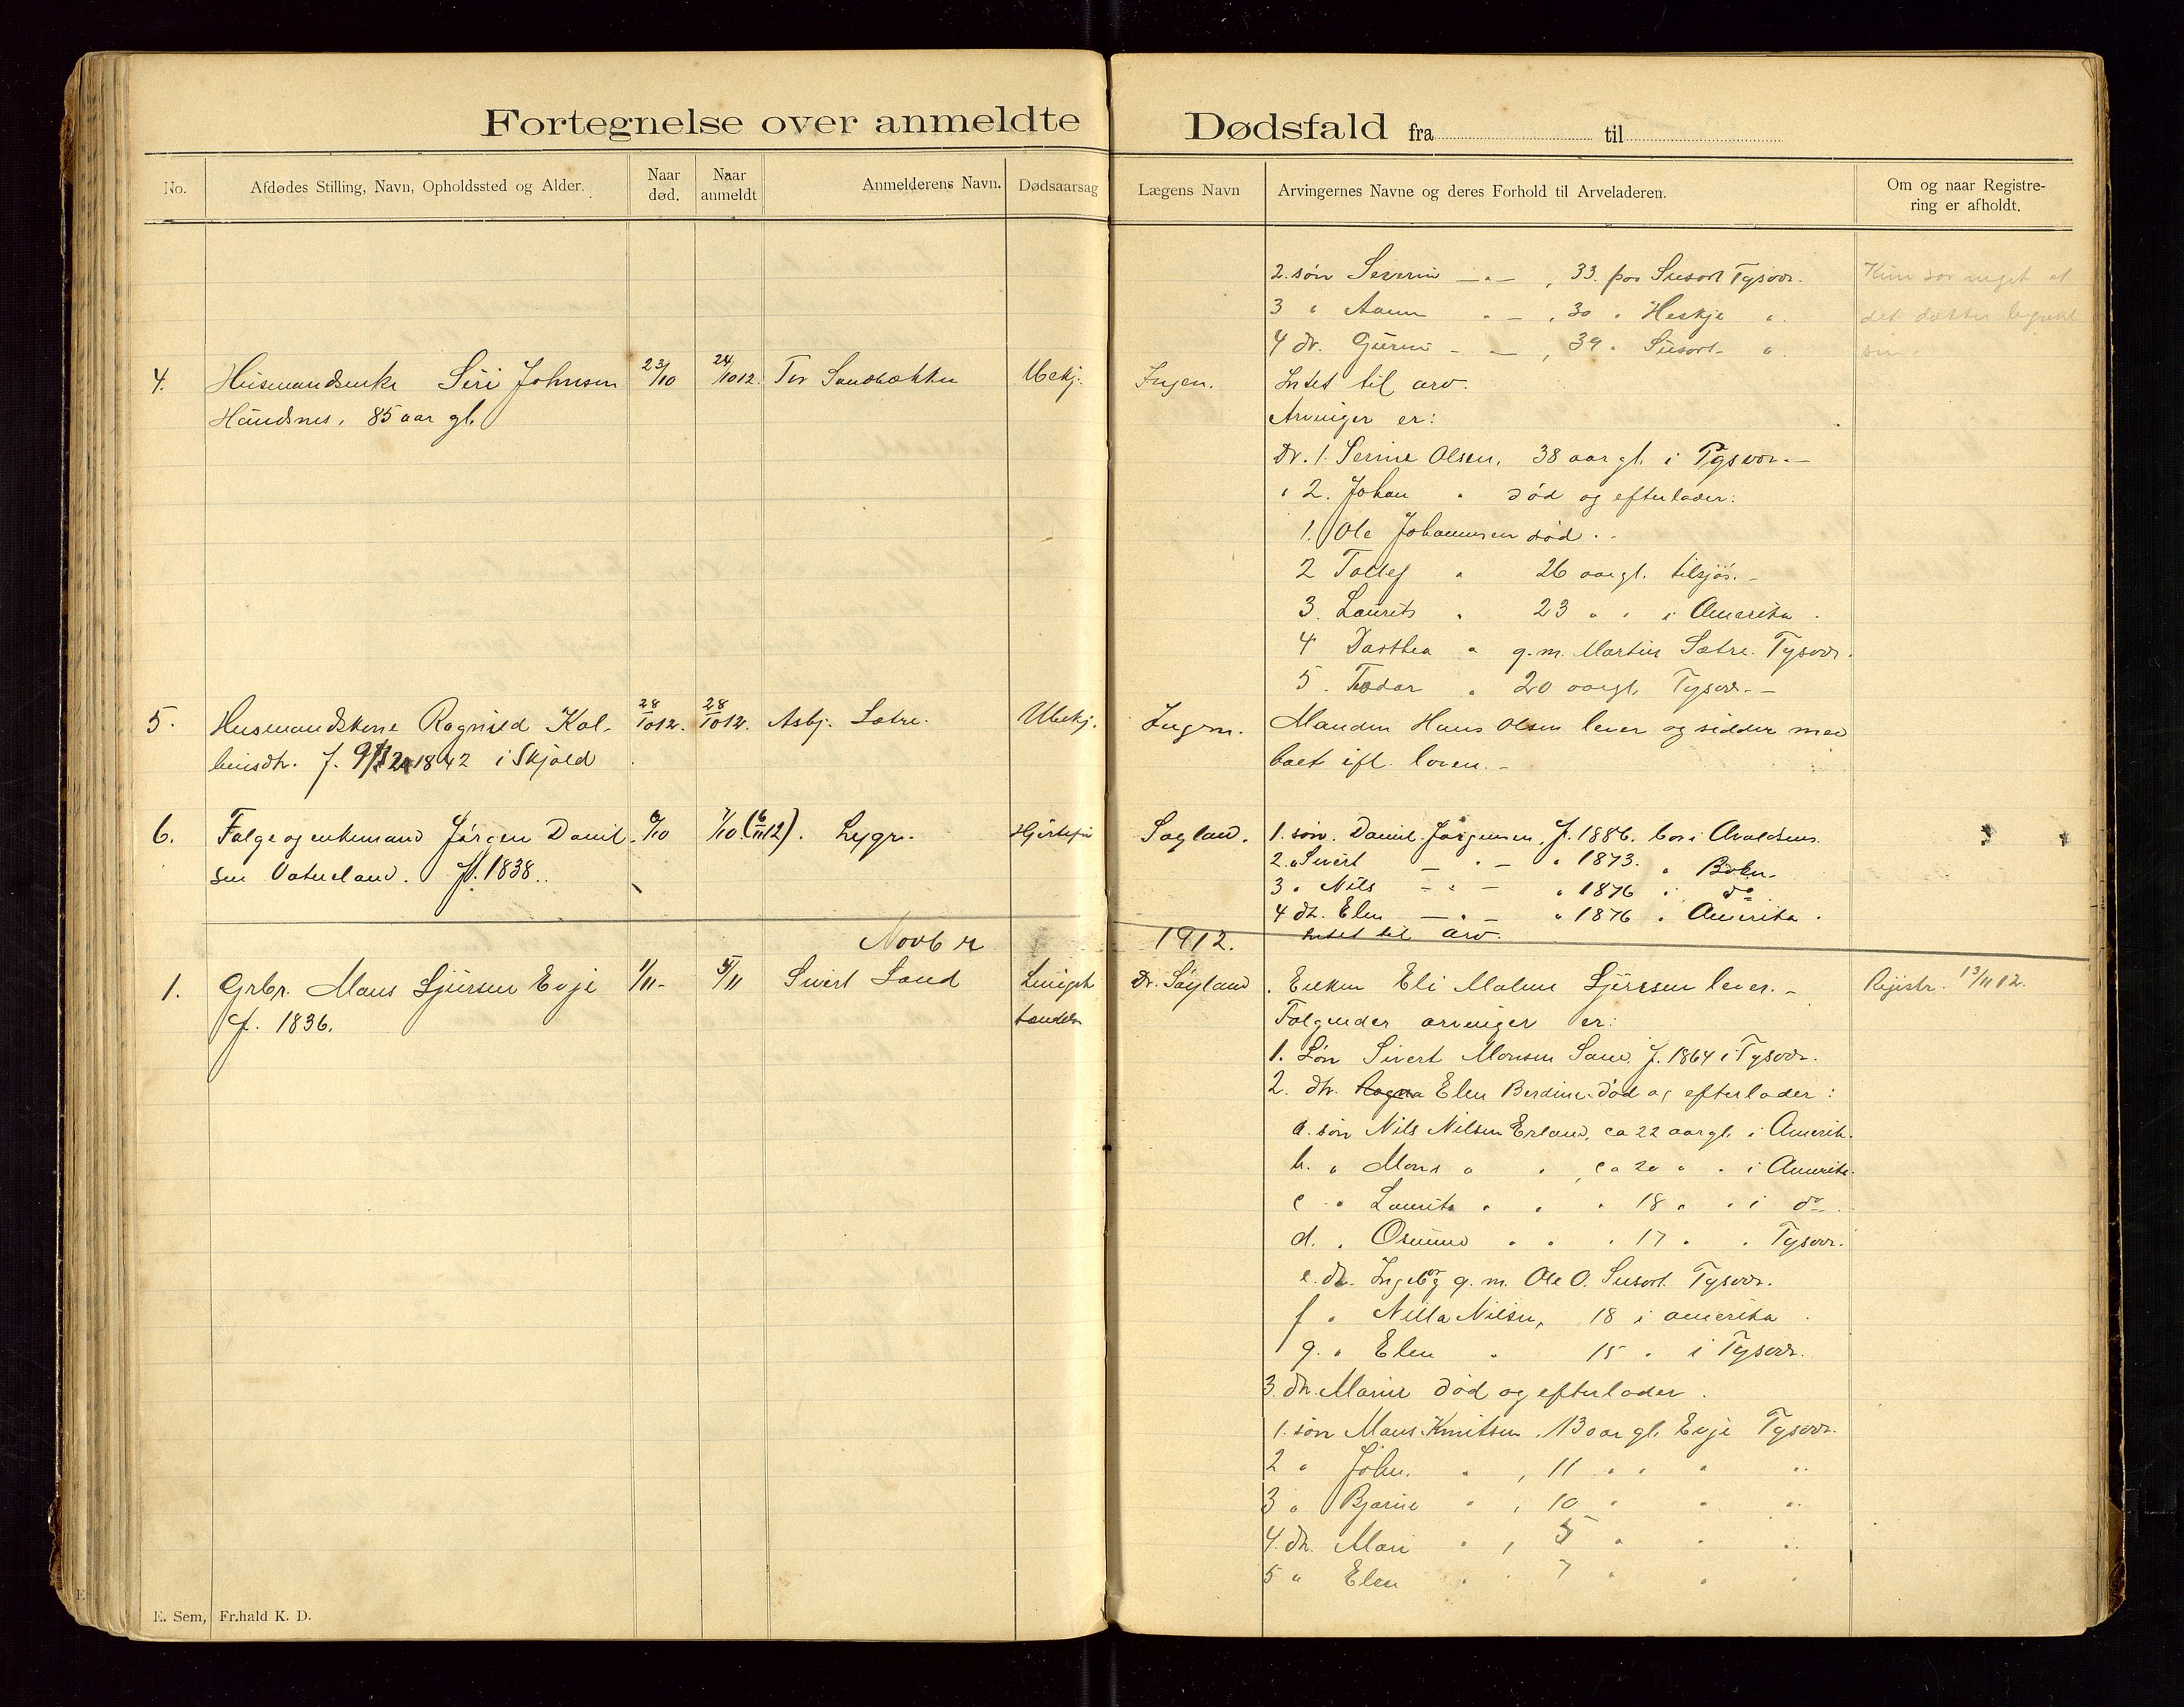 Fortegnelse over anmeldte Dødsfald fra til
No. Afdødes Stilling, Navn, Opholdssted og Alder. Naar død. Naar anmeldt Anmelderens Navn. Dødsaarsag Lægens Navn Arvingernes Navne og deres Forhold til Arveladeren. Om og naar Registrering er afholdt.
2. søn Severin — " — , 33. paa Susort Tysvær.
3 " " — , 30 " Heskje "
4 dr. — — , 39 " Susort "
4. Husmandsenke Siri Johnsen 23/10 24/10 12. Tor Sandbækken Ubekj. Ingen. Intet til arv.
Hundsnes, 85 aar gl. Arvinger er:
Dr. 1. Serine Olsen, 38 aar gl. i Tysvær. —
" 2. Johan " død og efterlader:
1. Ole Johannesen død.
2 Tollef " 26 aar gl. tilsjøs. —
3. Laurits " 23 " " i Amerika.
4 Dorthea " g. m. Martin Sætre. Tysvær.
5. Todar " 20 aar gl. Tysvær. —
5. Husmandskone Ragnild Kol- 28/10 12. 28/10 12. Asbj. Sætre. Ubekj. Ingen. Manden Hans Olsen lever og sidder med
beinsdtr. f. 1842 i Skjold boet ifl. loven. —
6. Folge og enkemand Jørgen Danil- 6/10 7/10 (16/11 12). Lygr. Hjertefei Søyland. 1. søn. Daniel Jørgensen, f. 1886. bor i Avaldsnes.
sen Vatneland. f. 1838. 2. " Sivert — " — " 1873. " Bokn.
3 " Nils — " — " 1876 " do
4 dt. Elen — " — " 1876 " Amerika.
Intet til arv.
Novbr 1912.
1. Grbr. Mons Sjursen Evje 1/11 - 5/11 Sivert Sand Dr. Søyland. Enken Eli Malene Sjursen lever. — Registr. 13/11 12.
f. 1836. Følgender arvinger er:
1. Søn Sivert Monsen Sand, f. 1864 i Tysvær.
2. dtr. Ragna Elen Berdine død og efterlader:
a. søn Nils Nilsen Erland, ca 22 aar gl. i Amerik.
b. " Mons " " , ca 20 " " i Amerika.
c " Laurits " " " 18 " " i do
d. " Osmund " " " 17 " " Tysvær.
e. dt. Ingeborg g. m. Ole O. Susort. Tysvær.
f " Nella Nilsen, 18 i amerika.
g. " Elen " 15 " i Tysvær.
3. dtr. Marie død og efterlader.
1. søn Mons Knutsen, 13 aar gl. Evje Tysvær.
2 " John. " , 11 " " " "
3 " Bjarne " , 10 " " "
4. dtr. Mari " , 5 " " "
5 " Elen " " 7 " " "
E. Sem, Fr.hald K. D.